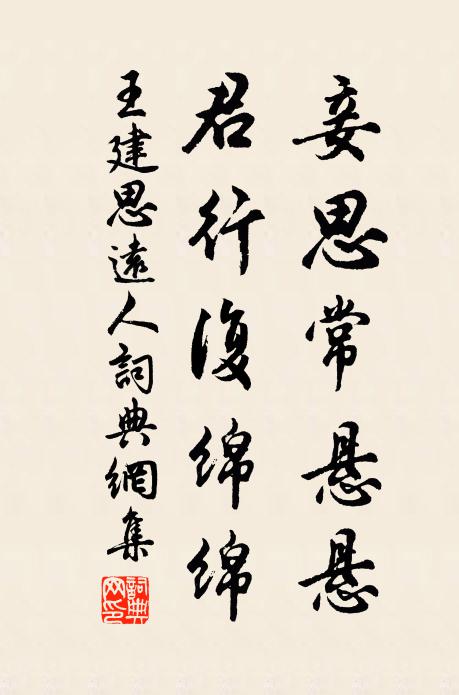 妾思常悬悬
君行復绵绵
王建思遠人詞典網集
詞典网印